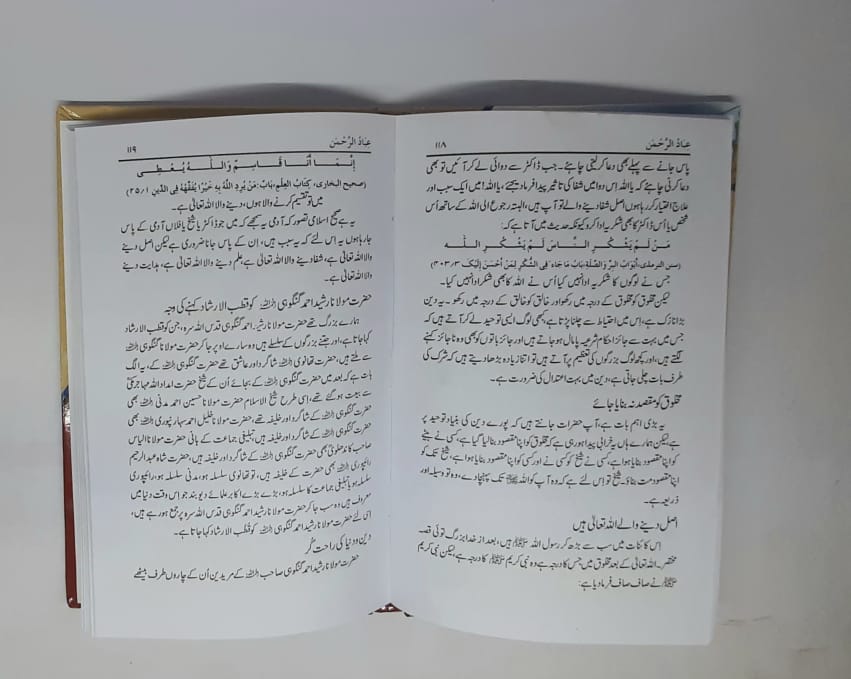 ۱۱۸ عِبَادُ الرَّحْمٰن
پاس جانے سے پہلے بھی دعا کر لینی چاہئے۔ جب ڈاکٹر سے دوائی لے کر آئیں تو بھی
دعا کرنی چاہئے کہ یا اللہ اِس دوا میں شفا کی تاثیر پیدا فرما دیجئے، یا اللہ! میں ایک سبب اور
علاج اختیار کر رہا ہوں اصل شفا دینے والے تو آپ ہیں، البتہ رجوع الی اللہ کے ساتھ اُس
شخص یا اُس ڈاکٹر کا بھی شکریہ ادا کرو کیونکہ حدیث میں آتا ہے کہ:
مَنْ لَمْ يَشْكُرِ النَّاسَ لَمْ يَشْكُرِ اللّٰهَ
(سنن الترمذی، اَبْوَابُ البِرِّ وَالصِّلَةِ، بَابُ مَا جَاءَ فِی الشُّكْرِ لِمَنْ أَحْسَنَ إِلَيْكَ ۳/۴۰۳)
جس نے لوگوں کا شکریہ ادا نہیں کیا اُس نے اللہ کا بھی شکر ادا نہیں کیا۔
لیکن مخلوق کو مخلوق کے درجہ میں رکھو اور خالق کو خالق کے درجہ میں رکھو۔ یہ دین
بڑا نازک ہے، اِس میں احتیاط سے چلنا پڑتا ہے، کبھی لوگ ایسی توحید لے کر آتے ہیں کہ
جس میں بہت سے جائز احکامِ شرعیہ پامال ہو جاتے ہیں اور جائز باتوں کو بھی وہ ناجائز کہنے
لگتے ہیں، اور کچھ لوگ بزرگوں کی تعظیم پر آتے ہیں تو اتنا زیادہ بڑھا دیتے ہیں کہ شرک کی
طرف بات چلی جاتی ہے، دین میں بہت اعتدال کی ضرورت ہے۔
مخلوق کو مقصد نہ بنایا جائے
یہ بڑی اہم بات ہے، آپ حضرات جانتے ہیں کہ پورے دین کی بنیاد توحید پر
ہے لیکن ہمارے ہاں یہ خرابی پیدا ہو رہی ہے کہ مخلوق کو اپنا مقصود بنا لیا گیا ہے، کسی نے بیٹے
کو اپنا مقصود بنایا ہوا ہے، کسی نے شیخ کو کسی نے اور کسی کو اپنا مقصود بنایا ہوا ہے، شیخ تک کو
اپنا مقصود مت بناؤ۔ شیخ تو اِس لئے ہے کہ وہ آپ کو اللہ تک پہنچا دے، وہ تو وسیلہ اور
ذریعہ ہے۔
اصل دینے والے اللہ تعالیٰ ہیں
اِس کائنات میں سب سے بڑھ کر رسول اللہ ﷺ ہیں، بعد از خدا بزرگ توئی قصہ
مختصر۔ اللہ تعالیٰ کے بعد مخلوق میں جس کا درجہ ہے وہ نبی کریم ﷺ کا درجہ ہے، لیکن نبی کریم
ﷺ نے صاف صاف فرما دیا ہے:
۱۱۹ عِبَادُ الرَّحْمٰن
إِنَّمَا أَنَا قَاسِمٌ وَاللّٰهُ يُعْطِي
(صحیح البخاری، كِتَابُ العِلْمِ، بَابٌ: مَنْ يُرِدِ اللّٰهُ بِهِ خَيْرًا يُفَقِّهْهُ فِي الدِّينِ ۱/۲۵)
میں تو تقسیم کرنے والا ہوں، دینے والا اللہ تعالیٰ ہے۔
یہ ہے صحیح اسلامی تصور کہ آدمی یہ سمجھے کہ میں جو ڈاکٹر یا شیخ یا فلاں آدمی کے پاس
جا رہا ہوں یہ اس لئے کہ یہ سبب ہیں، اِن کے پاس جانا ضروری ہے لیکن اصل دینے
والا اللہ تعالیٰ ہے، شفا دینے والا اللہ تعالیٰ ہے، علم دینے والا اللہ تعالیٰ ہے، ہدایت دینے
والا اللہ تعالیٰ ہے۔
حضرت مولانا رشید احمد گنگوہی رحمۃ اللہ علیہ کو قطب الارشاد کہنے کی وجہ
ہمارے بزرگ تھے حضرت مولانا رشید احمد گنگوہی قدس اللہ سرہ، جن کو قطب الارشاد
کہا جاتا ہے، اور جتنے بزرگوں کے سلسلے ہیں وہ سارے اوپر جا کر حضرت مولانا گنگوہی رحمۃ اللہ علیہ
سے ملتے ہیں، حضرت تھانوی رحمۃ اللہ علیہ شاگرد اور عاشق تھے حضرت گنگوہی رحمۃ اللہ علیہ کے، یہ الگ
بات ہے کہ بعد میں حضرت گنگوہی رحمۃ اللہ علیہ کے بجائے اُن کے شیخ حضرت امداد اللہ مہاجر مکی
سے بیعت ہو گئے تھے، اسی طرح شیخ الاسلام حضرت مولانا حسین احمد مدنی رحمۃ اللہ علیہ بھی
حضرت گنگوہی رحمۃ اللہ علیہ کے شاگرد اور خلیفہ تھے، حضرت مولانا خلیل احمد سہارنپوری رحمۃ اللہ علیہ بھی
حضرت گنگوہی رحمۃ اللہ علیہ کے شاگرد اور خلیفہ ہیں، تبلیغی جماعت کے بانی حضرت مولانا الیاس
صاحب کاندھلوی بھی حضرت گنگوہی رحمۃ اللہ علیہ کے شاگرد اور خلیفہ ہیں، حضرت شاہ عبدالرحیم
رائپوری رحمۃ اللہ علیہ بھی حضرت کے خلیفہ ہیں، تو تھانوی سلسلہ ہو، مدنی سلسلہ ہو، رائپوری
سلسلہ ہو یا تبلیغی جماعت کا سلسلہ ہو، بڑے بڑے اکابر علمائے دیوبند جو اِس وقت دنیا میں
معروف ہیں وہ سب جا کر حضرت مولانا رشید احمد گنگوہی قدس اللہ سرہ پر جمع ہو رہے ہیں،
اسی لئے حضرت مولانا رشید احمد گنگوہی رحمۃ اللہ علیہ کو قُطب الارشاد کہا جاتا ہے۔
دین و دنیا کی راحت کا گُر
حضرت مولانا رشید احمد گنگوہی صاحب رحمۃ اللہ علیہ کے مریدین اُن کے چاروں طرف بیٹھے